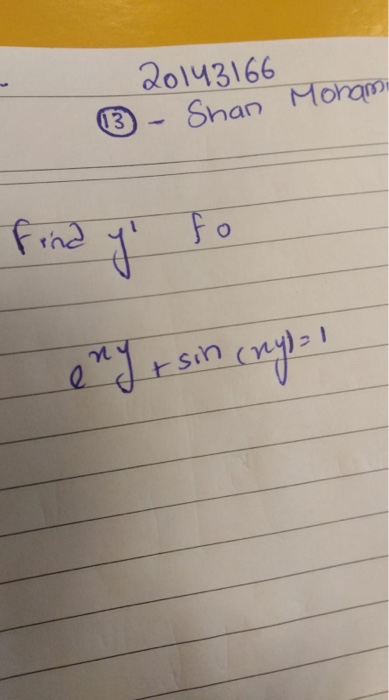 20143166
13 - Shan Moham
Find y' fo
e^xy + sin (xy) = 1